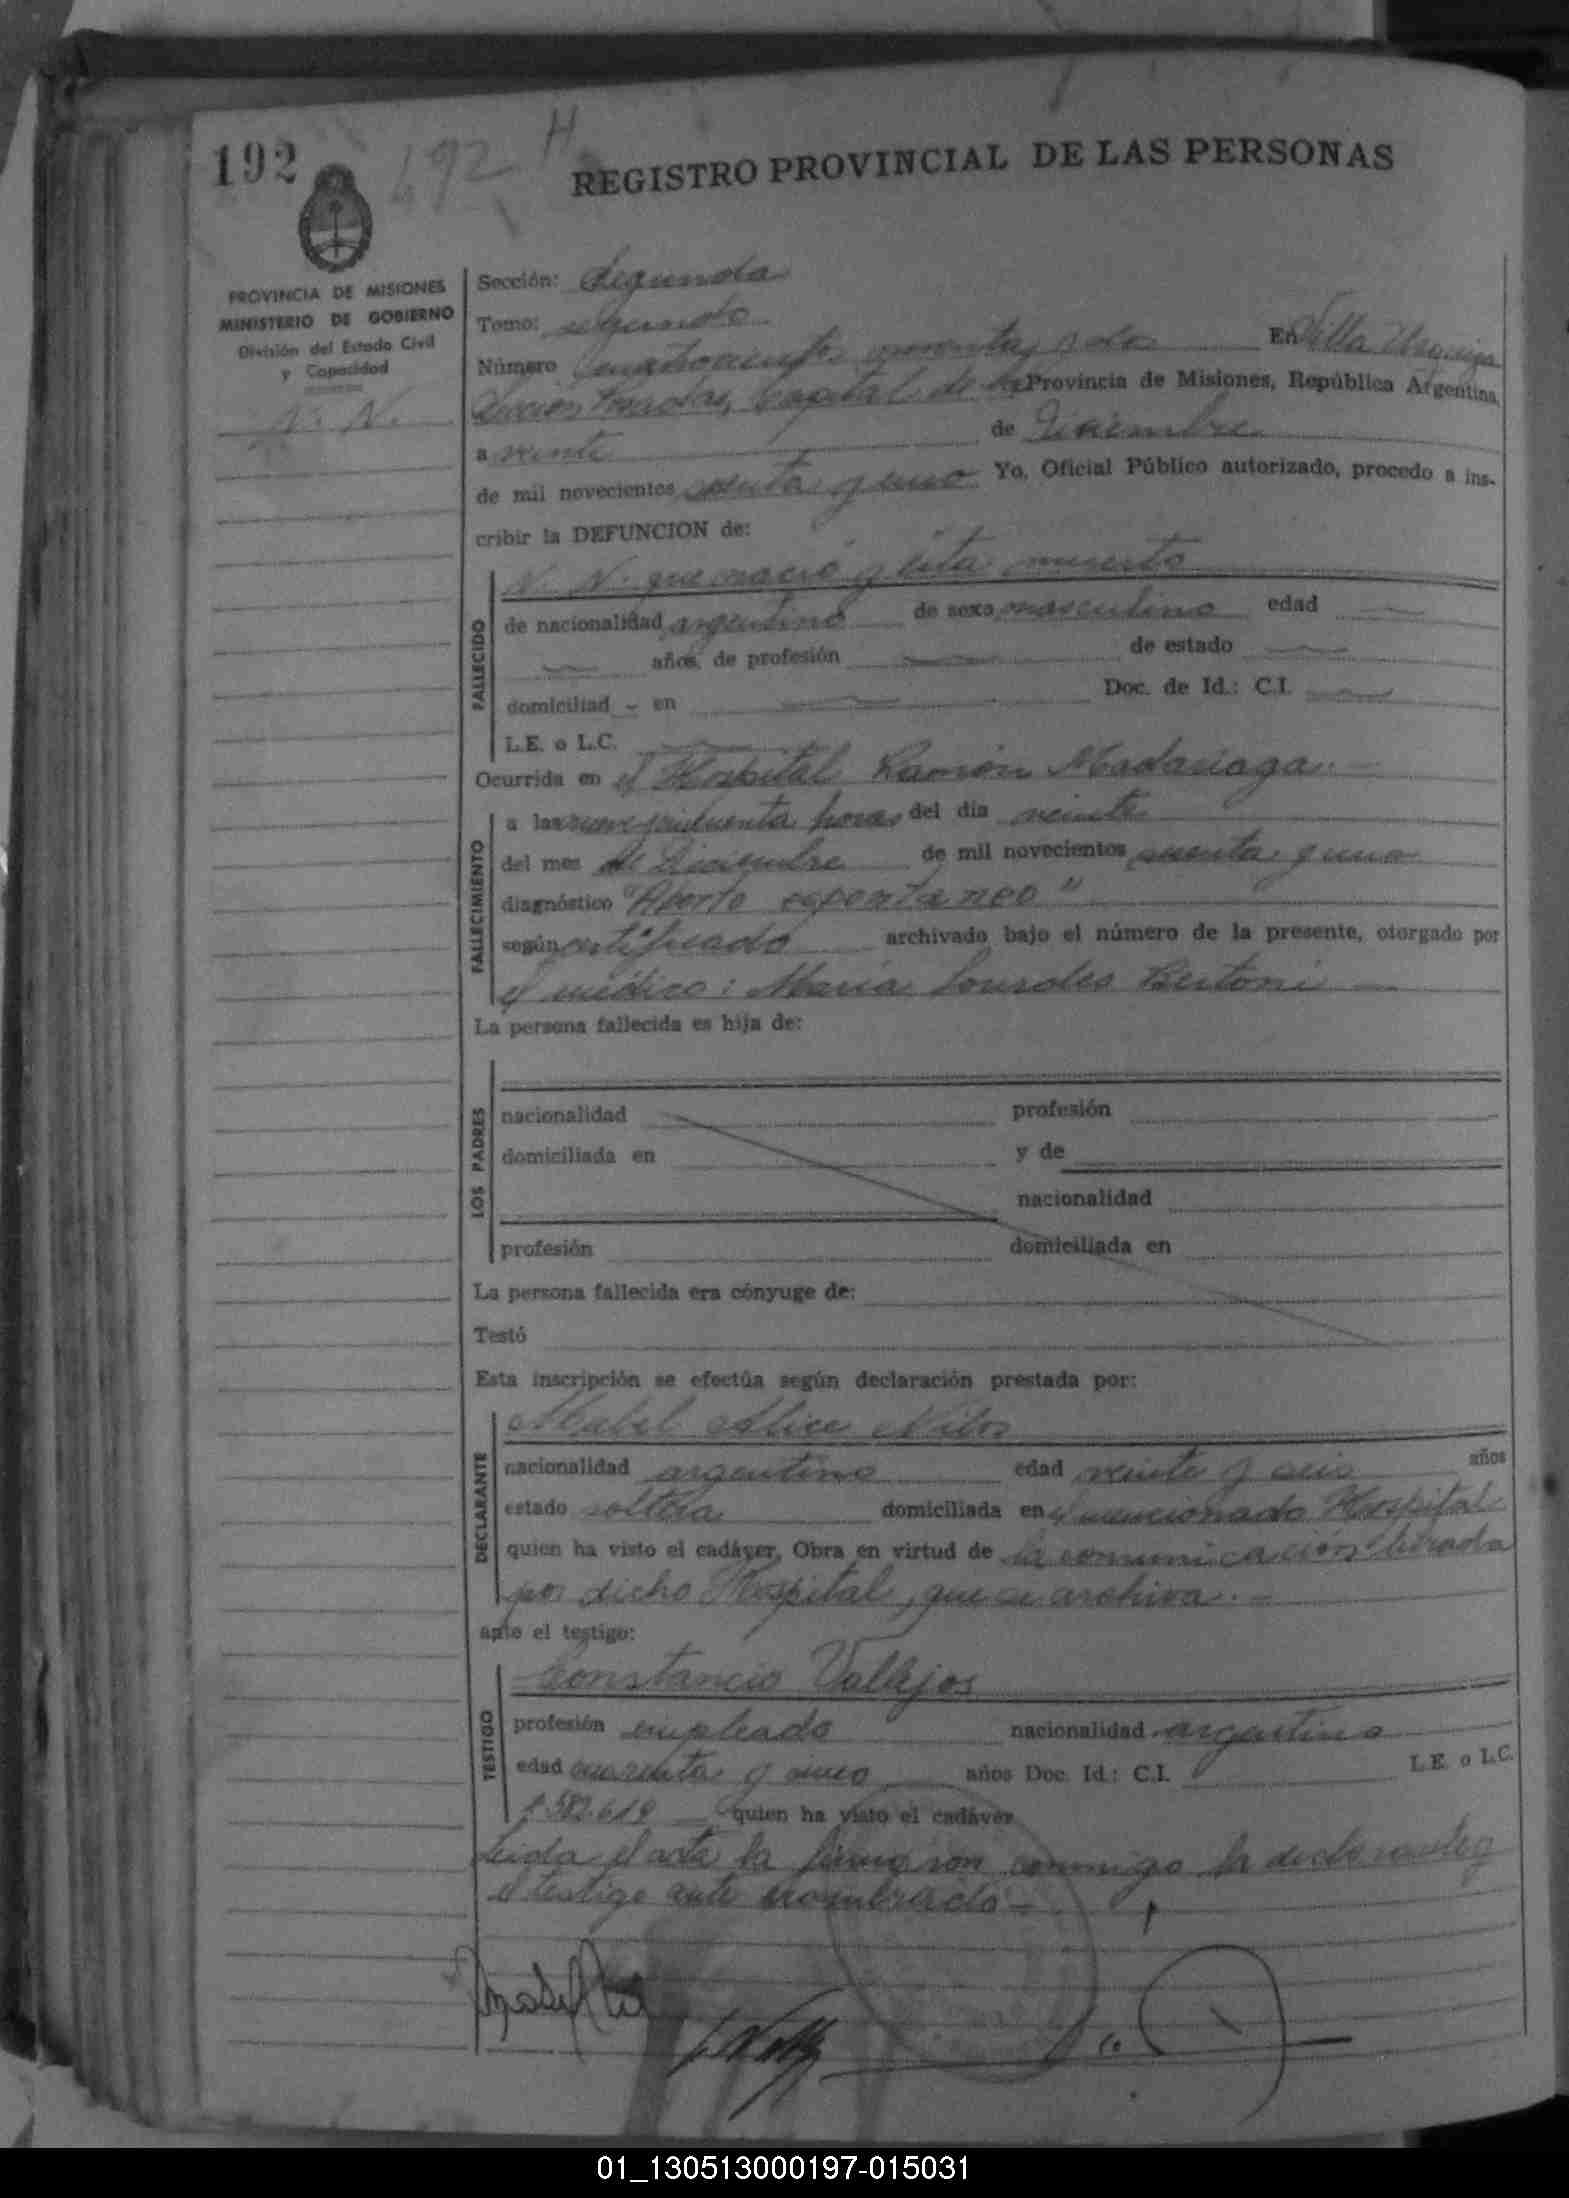 192
492 H
REGISTRO PROVINCIAL DE LAS PERSONAS
PROVINCIA DE MISIONES
MINISTERIO DE GOBIERNO
División del Estado Civil
y Capacidad
N. N.
Sección: Segunda
Tomo: segundo
Número Cuatrocientos noventa y dos En Villa Urquiza
Sección Posadas, Capital de la Provincia de Misiones, República Argentina,
a veinte de Diciembre
de mil novecientos setenta y uno Yo, Oficial Público autorizado, procedo a ins-
cribir la DEFUNCION de:
FALLECIDO
N. N. que nació y está muerto
de nacionalidad argentino de sexo masculino edad
años, de profesión de estado
domiciliad - en Doc. de Id.: C.I.
L.E. o L.C.
Ocurrida en el Hospital Ramón Madariaga.-
FALLECIMIENTO
a las nueve y cincuenta horas del día veinte
del mes de Diciembre de mil novecientos setenta y uno
diagnóstico "Aborto espontáneo"
según certificado archivado bajo el número de la presente, otorgado por
el médico: María Lourdes Bertoni
La persona fallecida es hija de:
LOS PADRES
nacionalidad profesión
domiciliada en y de
nacionalidad
profesión domiciliada en
La persona fallecida era cónyuge de:
Testó
Esta inscripción se efectúa según declaración prestada por:
DECLARANTE
Mabel Alice
nacionalidad argentina edad veinte y seis años
estado soltera domiciliada en el mencionado Hospital
quien ha visto el cadáver, Obra en virtud de la comunicación librada
por dicho Hospital, que se archiva.-
ante el testigo:
TESTIGO
Constancio Vallejos
profesión empleado nacionalidad argentino
edad cuarenta y cinco años Doc. Id.: C.I. L.E. o L.C.
1.582.619 quien ha visto el cadáver
Leida el acta la firmaron conmigo la declarante y
el testigo ante nombrado.-
01_130513000197-015031